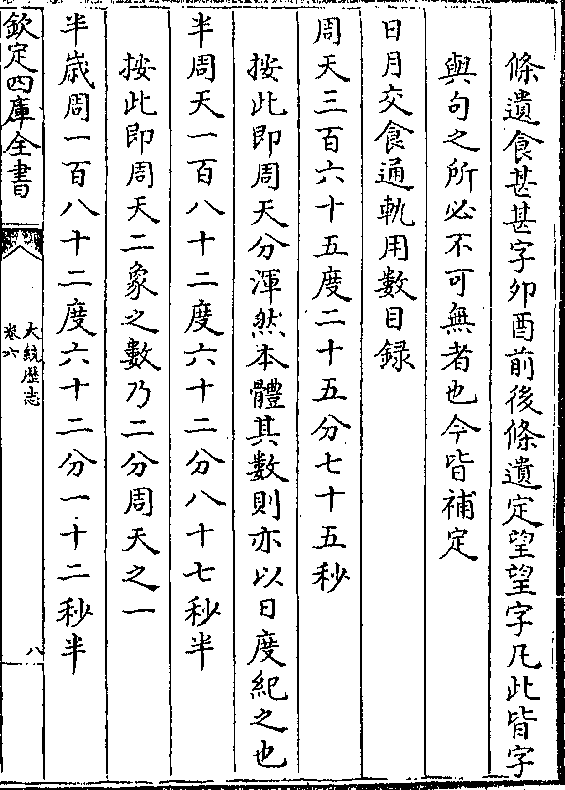 條遺食甚甚字卯酉前後條遺定望望字凡此皆字
與句之所必不可無者也今皆補定
日月交食通軌用數目録
周天三百六十五度二十五分七十五秒
按此即周天分渾然本體其數則亦以日度紀之也
半周天一百八十二度六十二分八十七秒半
按此即周天二象之數乃二分周天之一
半歲周一百八十二度六十二分一十二秒半
欽定四庫全書
大統歷志
卷六
八